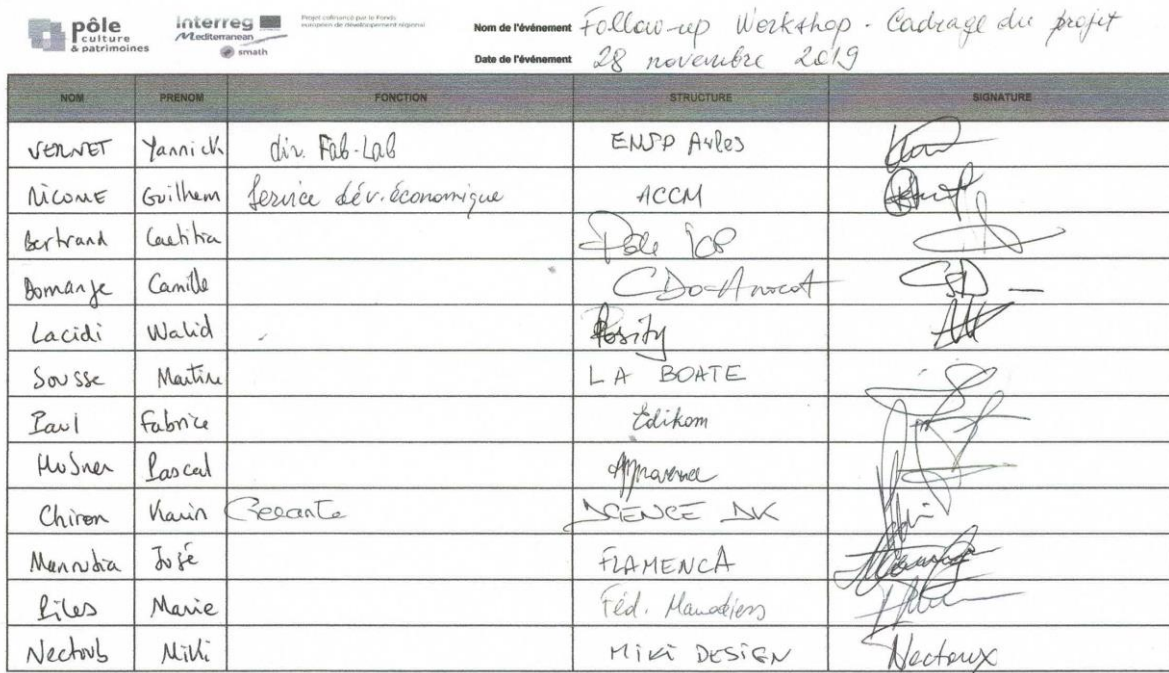 pôle
culture
& patrimoines
Interreg
Mediterranean
smath
Projet cofinancé par le Fonds
européen de développement régional
Nom de l'événement Follow-up Workshop - Cadrage du projet
Date de l'événement 28 novembre 2019
NOM PRENOM FONCTION STRUCTURE SIGNATURE
VERNET Yannick dir. Fab-Lab ENSP Arles
NICONE Guilhem Service dév. économique ACCM
Bertrand Laetitia Pôle ICP
Domange Camille CDO-Avocat
Lacidi Walid Posity
Sousse Martine LA BOATE
Paul Fabrice Edikom
Pascal
Chiron Karin Gérante AGENCE DK
José FLAMENCA
Piles Marie Féd.
Miki MIKI DESIGN Nectoux